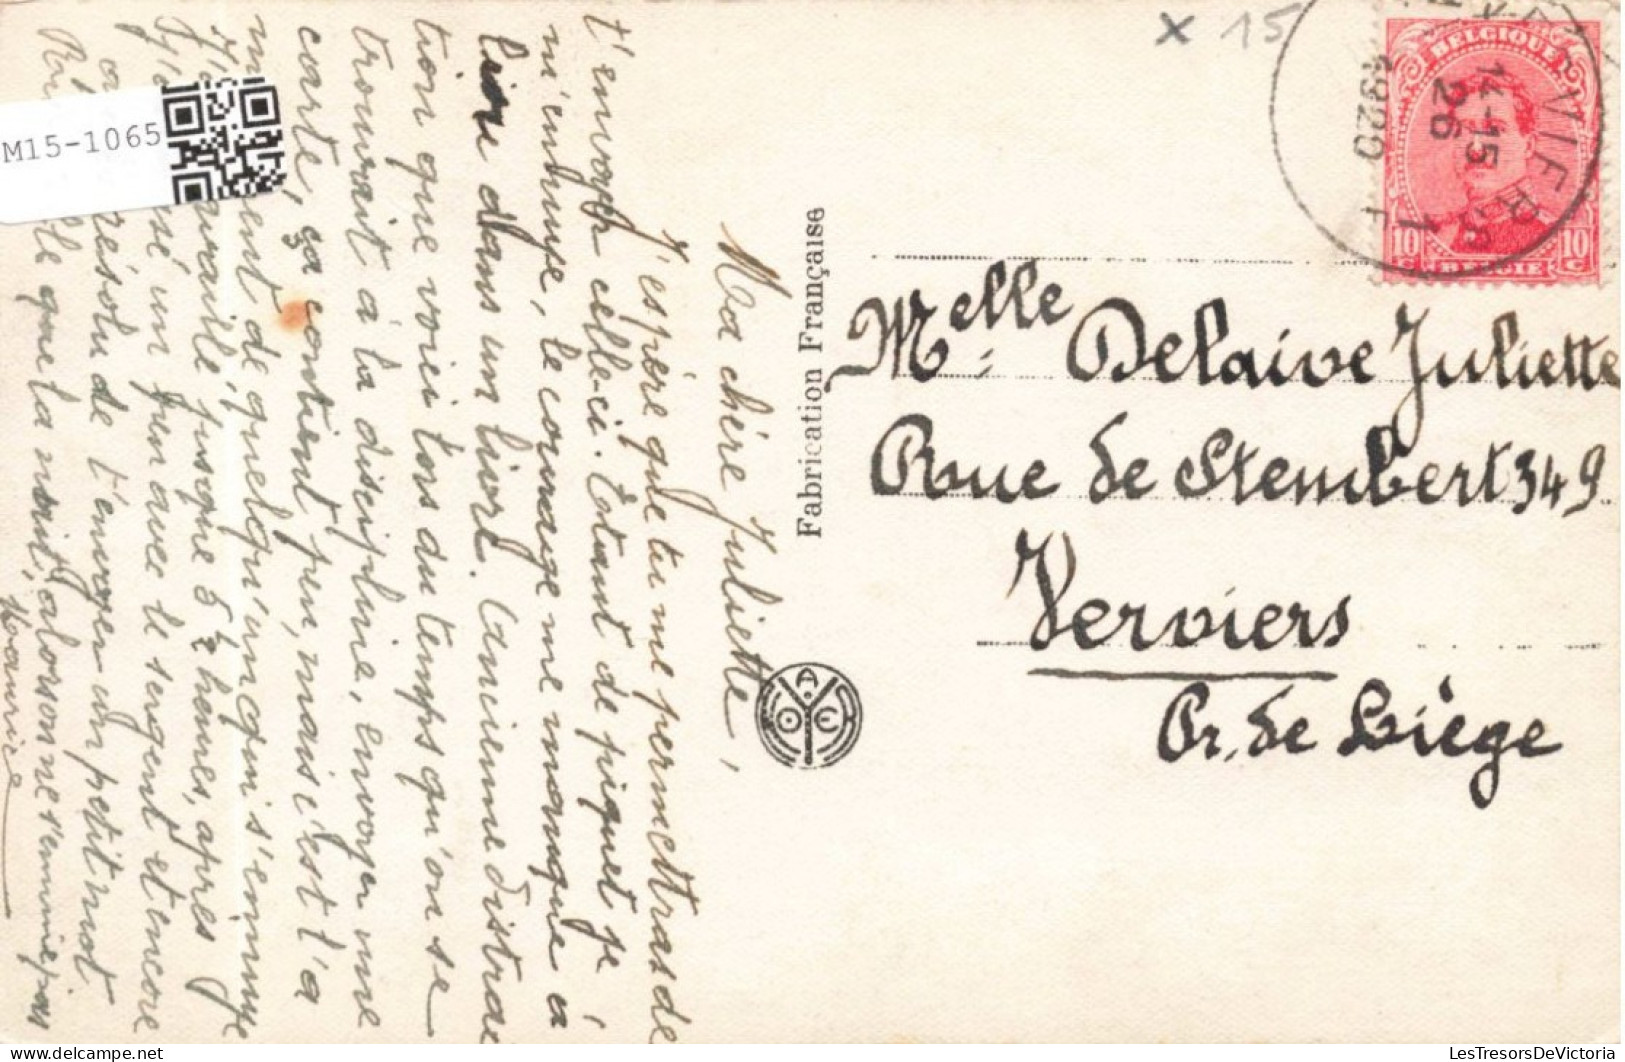 Ma chère Juliette,
J'espère que tu me permettras de
t'envoyer celle-ci. Etant de piquet je
m'ennuye, le courage me manque à
lire dans un livre. Aucienne distrac
tion que voici lors du temps qu'on se
trouvait à la discipline, envoyer une
carte, ça contient peu, mais c'est l'a
ent de quelqu'un qui s'ennuye
travaillé jusque 5½ heures, après
sé un peu avec le sergent et encore
résolu de t'envoyer un petit mot
que ta nuit, alors on ne s'ennuie pas
Maurice
M15-1065
Fabrication Française
A
x 15
BELGIQUE
10 C
10 C
BELGIE
VERVIERS
14-15
26
1920
1
F
Melle Delaive Juliette
Rue de Stembert 349
Verviers
Pr. de Liège
LesTresorsDeVictoria